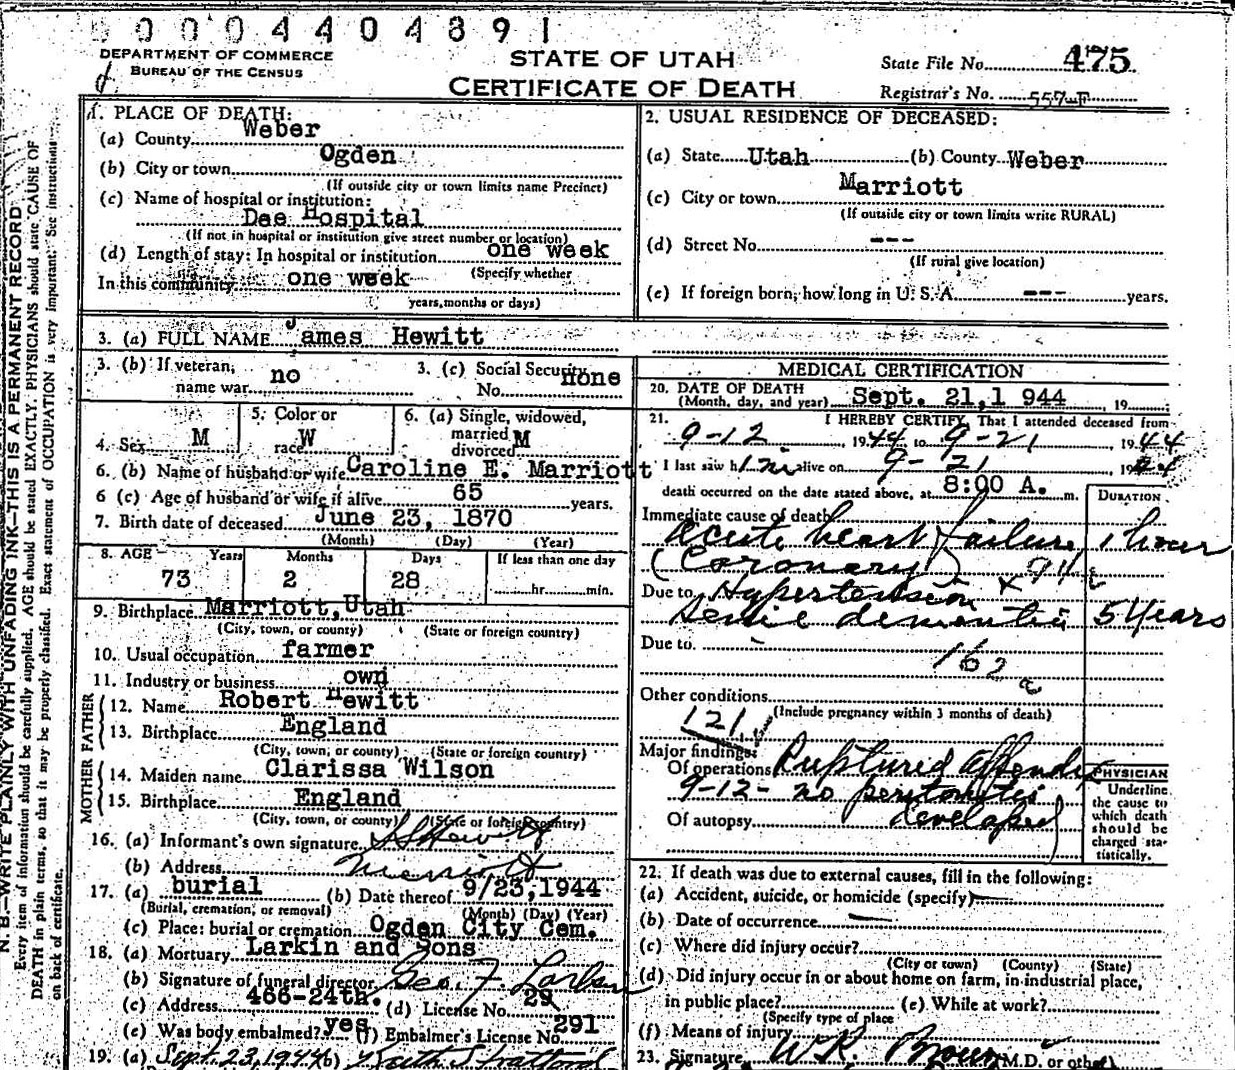 00004404891
DEPARTMENT OF COMMERCE
BUREAU OF THE CENSUS
STATE OF UTAH
CERTIFICATE OF DEATH
State File No. 475
Registrar's No. 557-F
N. B.—WRITE PLAINLY WITH UNFADING INK—THIS IS A PERMANENT RECORD
Every item of information should be carefully supplied. AGE should be stated EXACTLY. PHYSICIANS should state CAUSE OF
DEATH in plain terms, so that it may be properly classified. Exact statement of OCCUPATION is very important. See instructions
on back of certificate.
1. PLACE OF DEATH:
(a) County Weber
(b) City or town Ogden
(If outside city or town limits name Precinct)
(c) Name of hospital or institution:
Dee Hospital
(If not in hospital or institution give street number or location)
(d) Length of stay: In hospital or institution one week
(Specify whether
In this community one week
years, months or days)
2. USUAL RESIDENCE OF DECEASED:
(a) State Utah (b) County Weber
(c) City or town Marriott
(If outside city or town limits write RURAL)
(d) Street No. ---
(If rural give location)
(e) If foreign born, how long in U. S. A. --- years.
3. (a) FULL NAME James Hewitt
3. (b) If veteran, name war no
3. (c) Social Security No. none
4. Sex M
5. Color or race W
6. (a) Single, widowed, married, divorced M
6. (b) Name of husband or wife Caroline E. Marriott
6 (c) Age of husband or wife if alive 65 years.
7. Birth date of deceased June 23, 1870
(Month) (Day) (Year)
8. AGE Years Months Days If less than one day
73 2 28 hr. min.
9. Birthplace Marriott, Utah
(City, town, or county) (State or foreign country)
10. Usual occupation farmer
11. Industry or business own
FATHER
12. Name Robert Hewitt
13. Birthplace England
(City, town, or county) (State or foreign country)
MOTHER
14. Maiden name Clarissa Wilson
15. Birthplace England
(City, town, or county) (State or foreign country)
16. (a) Informant's own signature Hewitt
(b) Address Marriott
17. (a) burial (b) Date thereof 9/23,1944
(Burial, cremation, or removal) (Month) (Day) (Year)
(c) Place: burial or cremation Ogden City Cem.
18. (a) Mortuary Larkin and Sons
(b) Signature of funeral director Geo. F. Larkin
(c) Address 466-24th. (d) License No. 29
(e) Was body embalmed? yes (f) Embalmer's License No. 291
19. (a) Sept. 23, 1944 (b) Stratford
MEDICAL CERTIFICATION
20. DATE OF DEATH
(Month, day, and year) Sept. 21,1 944, 19
21. I HEREBY CERTIFY, That I attended deceased from
9-12, 1944 to 9-21 1944
I last saw him alive on 9-21 1944
death occurred on the date stated above, at 8:00 A. m.
DURATION
Immediate cause of death
acute heart failure 1 hour
(Coronary) x 94 a
Due to Hypertension
Senile dementia 5 years
Due to
162 a
Other conditions
(Include pregnancy within 3 months of death)
121
Major findings:
Of operations Ruptured Appendix
9-12- no peritonitis
Of autopsy developed)
PHYSICIAN
Underline
the cause to
which death
should be
charged sta-
tistically.
22. If death was due to external causes, fill in the following:
(a) Accident, suicide, or homicide (specify)
(b) Date of occurrence
(c) Where did injury occur?
(City or town) (County) (State)
(d) Did injury occur in or about home on farm, in industrial place,
in public place? (e) While at work?
(Specify type of place
(f) Means of injury
23. Signature W R. (M.D. or other)